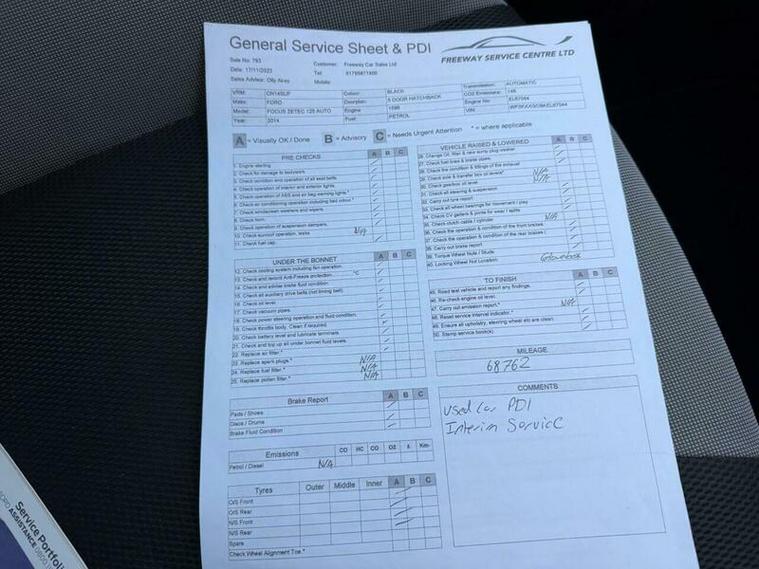 General Service Sheet & PDI
FREEWAY SERVICE CENTRE LTD
Sale No: 793
Date: 17/11/2023
Sales Advisor: Olly
Customer: Freeway Car Sales Ltd
Tel:
Mobile:
VRM:
Make: FORD
Model: FOCUS ZETEC 125 AUTO
Year: 2014
Colour: BLACK
Description: 5 DOOR HATCHBACK
Engine
Fuel: PETROL
Transmission: AUTOMATIC
CO2 Emissions: 146
Engine No:
VIN:
A = Visually OK / Done B = Advisory C = Needs Urgent Attention * = where applicable
PRE CHECKS A B C
1. Engine starting
2. Check for damage to bodywork.
3. Check condition and operation of all seat belts.
4. Check operation of interior and exterior lights.
5. Check operation of ABS and air bag warning lights.*
6. Check air conditioning operation including bad odour.*
7. Check windscreen washers and wipers.
8. Check horn.
9. Check operation of suspension dampers.
10. Check sunroof operation, leaks N/A
11. Check fuel cap.
UNDER THE BONNET A B C
12. Check cooling system including fan operation.
13. Check and record Anti-Freeze protection. °C
14. Check and advise brake fluid condition.
15. Check all auxiliary drive belts (not timing belt).
16. Check oil level.
17. Check vacuum pipes.
18. Check power steering operation and fluid condition.
19. Check throttle body. Clean if required.
20. Check battery level and lubricate terminals.
21. Check and top up all under bonnet fluid levels.
22. Replace air filter.*
23. Replace spark plugs.* N/A
24. Replace fuel filter.* N/A
25. Replace pollen filter.* N/A
Brake Report A B C
Pads / Shoes
Discs / Drums
Brake Fluid Condition
Emissions CO HC CO O2 λ Km-
Petrol / Diesel N/A
Tyres Outer Middle Inner A B C
O/S Front
O/S Rear
N/S Front
N/S Rear
Spare
Check Wheel Alignment Toe.*
VEHICLE RAISED & LOWERED A B C
26. Change Oil, filter & new sump plug washer
27. Check fuel lines & brake pipes.
28. Check the condition & fittings of the exhaust
29. Check axle & transfer box oil levels* N/A
30. Check gearbox oil level N/A
31. Check all steering & suspension
32. Carry out tyre report
33. Check all wheel bearings for movement / play
34. Check CV gaiters & joints for wear / splits
35. Check clutch cable / cylinder N/A
36. Check the operation & condition of the front brakes
37. Check the operation & condition of the rear brakes
38. Carry out brake report
39. Torque Wheel Nuts / Studs
40. Locking Wheel Nut Location: Glovebox
TO FINISH A B C
45. Road test vehicle and report any findings.
46. Re-check engine oil level.
47. Carry out emission report.* N/A
48. Reset service interval indicator.*
49. Ensure all upholstry, steering wheel etc are clean.
50. Stamp service book(s)
MILEAGE
68762
COMMENTS
Used Car PDI
Interim Service
Service Portfolio
ASSISTANCE 0800